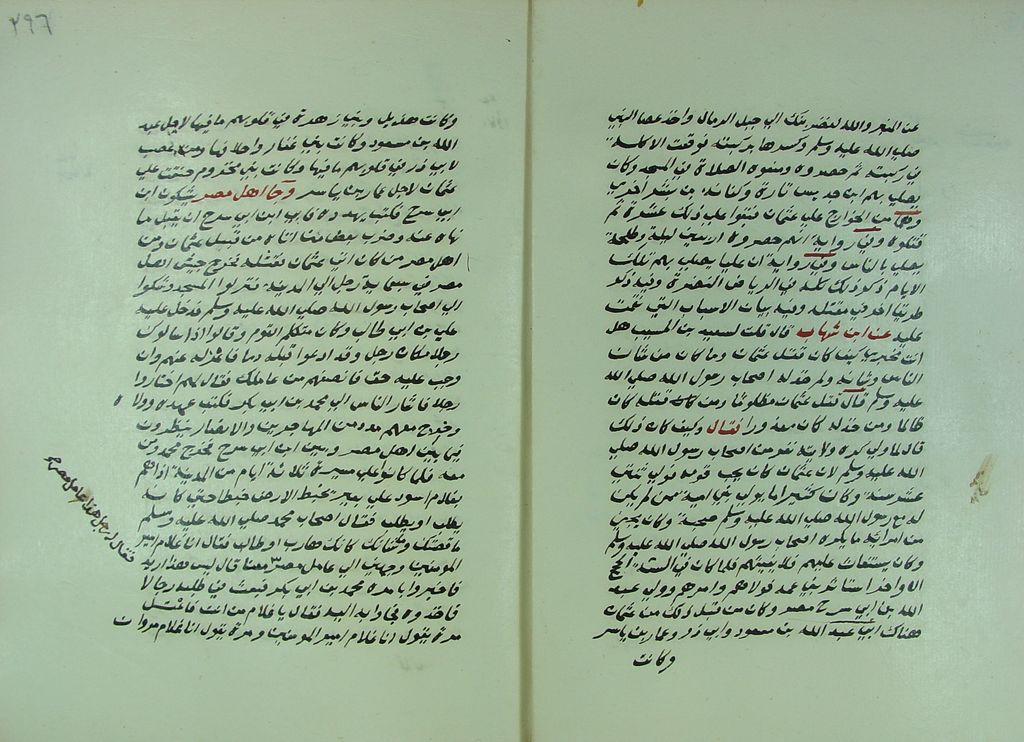 عن المنبر والله لنضربنك الي جبل الرمال واخذ عصا النبي
صلي الله عليه وسلم وكسرها بركبته فوقعت الاكلة
في ركبته ثم حصروه ومنعوه الصلاة في المسجد وكان
يصلي بهم ابن حديس تارة وكنانة بن بشر اخري
من الخوارج علي عثمان فبقوا علي ذلك عشرة ثم
قتلوه وفي رواية انهم حصروه اربعين ليلة وطلحة
يصلي بالناس وفي رواية ان عليا يصلي بهم تلك
الايام ذكر ذلك كله في الرياض النضرة وفيه ذكر
طريقا اخر في مقتله وفيه بيان الاسباب التي نقمت
عليه عن ابن شهاب قال قلت لسعيد بن المسيب هل
انت مخبري كيف كان قتل عثمان وما كان من شان
الناس وشانه ولم خذله اصحاب رسول الله صلي الله
عليه وسلم قال قتل عثمان مظلوما ومن كان قتله كان
ظالما ومن خذله كان معذورا فقال وكيف كان ذلك
قال لما ولي كره ولايته نفر من اصحاب رسول الله صلي
الله عليه وسلم لان عثمان كان يحب قومه فولي ثنتي
عشر سنة وكان كثيرا ما يولي بني امية ممن لم يكن
له مع رسول الله صلي الله عليه وسلم صحبة وكان يجي
من امرائه ما يكره اصحاب رسول الله صلي الله عليه وسلم
وكان يستغاث عليهم فلا يغيثهم فلما كان في الستة الحجج
الاواخر استاثر بني عمه فولاهم وامرهم وولي عبد
الله بن ابي سرح مصر وكان من قبل ذلك من عثمان
هناك الي عبد الله بن مسعود وابي ذر وعمار بن ياسر
وكانت
٢٩٦
وكانت هذيل وبني زهرة في قلوبهم ما فيها لاجل عبد
الله بن مسعود وكانت بني غفار واحلافها ومن غضب
لابي ذر في قلوبهم ما فيها وكانت بني مخزوم حنقت علي
عثمان لاجل عمار بن ياسر وجا اهل مصر يشكون ابن
ابي سرح فكتب يهدده فابي ابن ابي سرح ان يقبل ما
نهاه عنه وضرب بعض من اتاه من قبل عثمان ومن
اهل مصر من كان اتي عثمان فقتله فخرج جيش اهل
مصر في سبعماية رجل الي المدينة فنزلوا المسجد وشكوا
الي اصحاب رسول الله صلي الله عليه وسلم فدخل عليه
علي بن ابي طالب وكان متكلم القوم وقالوا انما سالوك
رجلا مكان رجل وقد ادعوا قبله دما فاعزله عنهم وان
وجب عليه حق فانصفهم من عاملك فقال لهم اختاروا
رجلا فاشار الناس الي محمد بن ابي بكر فكتب عهده وولاه
وخرج معهم عدد من المهاجرين والانصار ينظرون
فيما بين اهل مصر وبين ابن ابي سرح فخرج محمد ومن
معه فلما كانوا علي مسيرة ثلاثة ايام من المدينة اذا هم
بغلام اسود علي بعير يخبط الارض خبطا حتي كانه
يطلب او يطلب فقال اصحاب محمد صلي الله عليه وسلم
ما قصتك وشانك كانك هارب او طالب فقال انا غلام امير
المومنين وجهني الي عامل مصر معنا قال ليس هذا اريد
فاخبروا بامره محمد بن ابي بكر فبعث في طلبه رجالا
فاخذوه فجاوا به اليه فقال يا غلام من انت فاقبل
مرة يقول انا غلام امير المومنين ومرة يقول انا غلام مروان
فقال رجل هذا عامل مصر